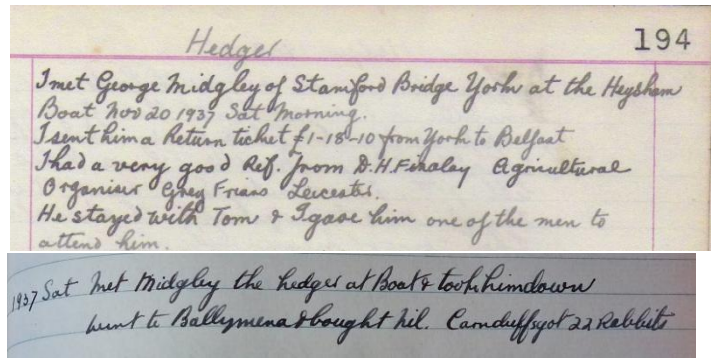 Hedger
194
I met George Midgley of Stamford Bridge York at the Heysham
Boat Nov 20 1937 Sat Morning.
I sent him a Return ticket £1-18-10 from York to Belfast
I had a very good Ref. from D.H. Finalay Agricultural
Organiser Grey Friars Leicester.
He stayed with Tom & I gave him one of the men to
attend him.
1937 Sat Met Midgley the hedger at Boat & took him down
went to Ballymena & bought nil. Carnduffs got 22 Rabbits